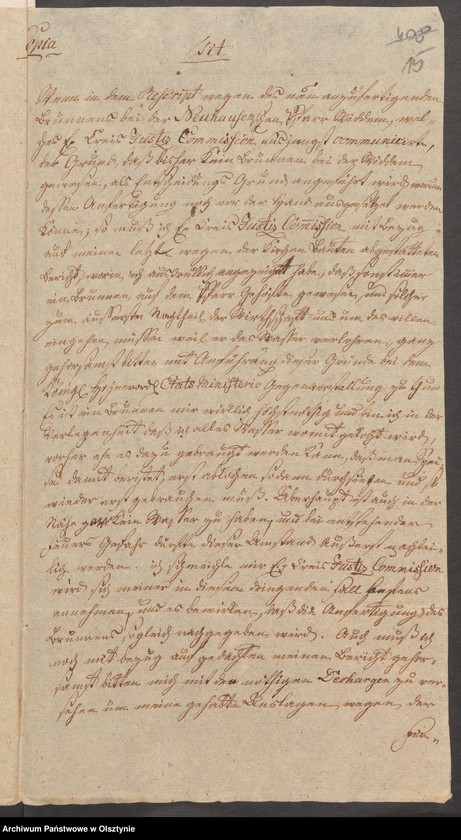 408
15
Copia
pst
Wenn in dem Rescript wegen des neu anzufertigenden
Brunnens bei der Neuhausenschen Pfarr Widdem, wel-
ches Er. Creis Justiz Commission communicirte,
der Grund, daß bisher kein Brunnen bei der Widdem
gewesen, als Entscheidungs Grund angeführt wird warum
dessen Anfertigung noch vor der Hand ausgesetzt werden
könne; so muß ich Er. Creis Justiz Comission mit Bezug
auf meinen letzt wegen der Kirchen Bauten abgestatteten
Bericht, worin ich ausdrücklich angezeigt habe, daß sonst
ein Brunnen auf dem Pfarr Gehöfte gewesen, und solcher
zum äussersten Nachtheil der Wirthschaft nur um des willen
eingehen müssen weil er das Wasser verlohren, ganz
gehorsamst bitten mit Anführung dieser Gründe bei dem
Königl. Etats Ministerio Gegenvorstellung zu thun
Es ist ein Brunnen mir wirklich höchstnöthig und bin ich in der
Verlegenheit daß ich alles Wasser womit gekocht wird,
vorher ehe es dazu gebraucht werden kann, daß man
damit erst abkochen sodann durchseihen und
wieder erst gebrauchen muß. Überhaupt ist auch in der
Nähe gar kein Wasser zu haben, und bei entstehender
Feuers Gefahr dürfte dieser Umstand äußerst nachtei-
lich werden. ich schmeichle mir Er. Creis Justiz Commission
wird sich meiner in diesem dringenden Fall bestens
annehmen, und es bewirken, daß die Anfertigung des
Brunnens sogleich nachgegeben wird. Auch muß ich
noch mit bezug auf gedachten meinen Bericht gehor-
samst bitten mich mit der nöthigen Decharge zu ver-
sehen um meine gehabte Auslagen, wegen der
Archiwum Państwowe w Olsztynie